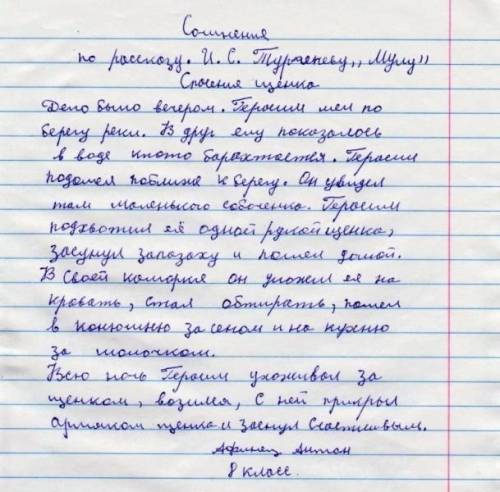 Сочинения
по рассказу. И. С. Тургеневу,, Муму"
Спасения щенка
Дело было вечером. Герасим шел по
берегу реки. В друг ему показалось
в воде ктото барахтается. Герасим
подошел поближе к берегу. Он увидел
там маленького собоченка. Герасим
подхватил её одной рукой щенка,
засунул запазаху и пошел домой.
В своей каморке он уложил ея на
кровать, стал обтирать, пошел
в конюшню за сеном и на кухню
за молочком.
Всю ночь Герасим ухоживал за
щенком, возился, с ней прикрыл
армяком щенка и заснул счастливым.
Антон
8 класс.